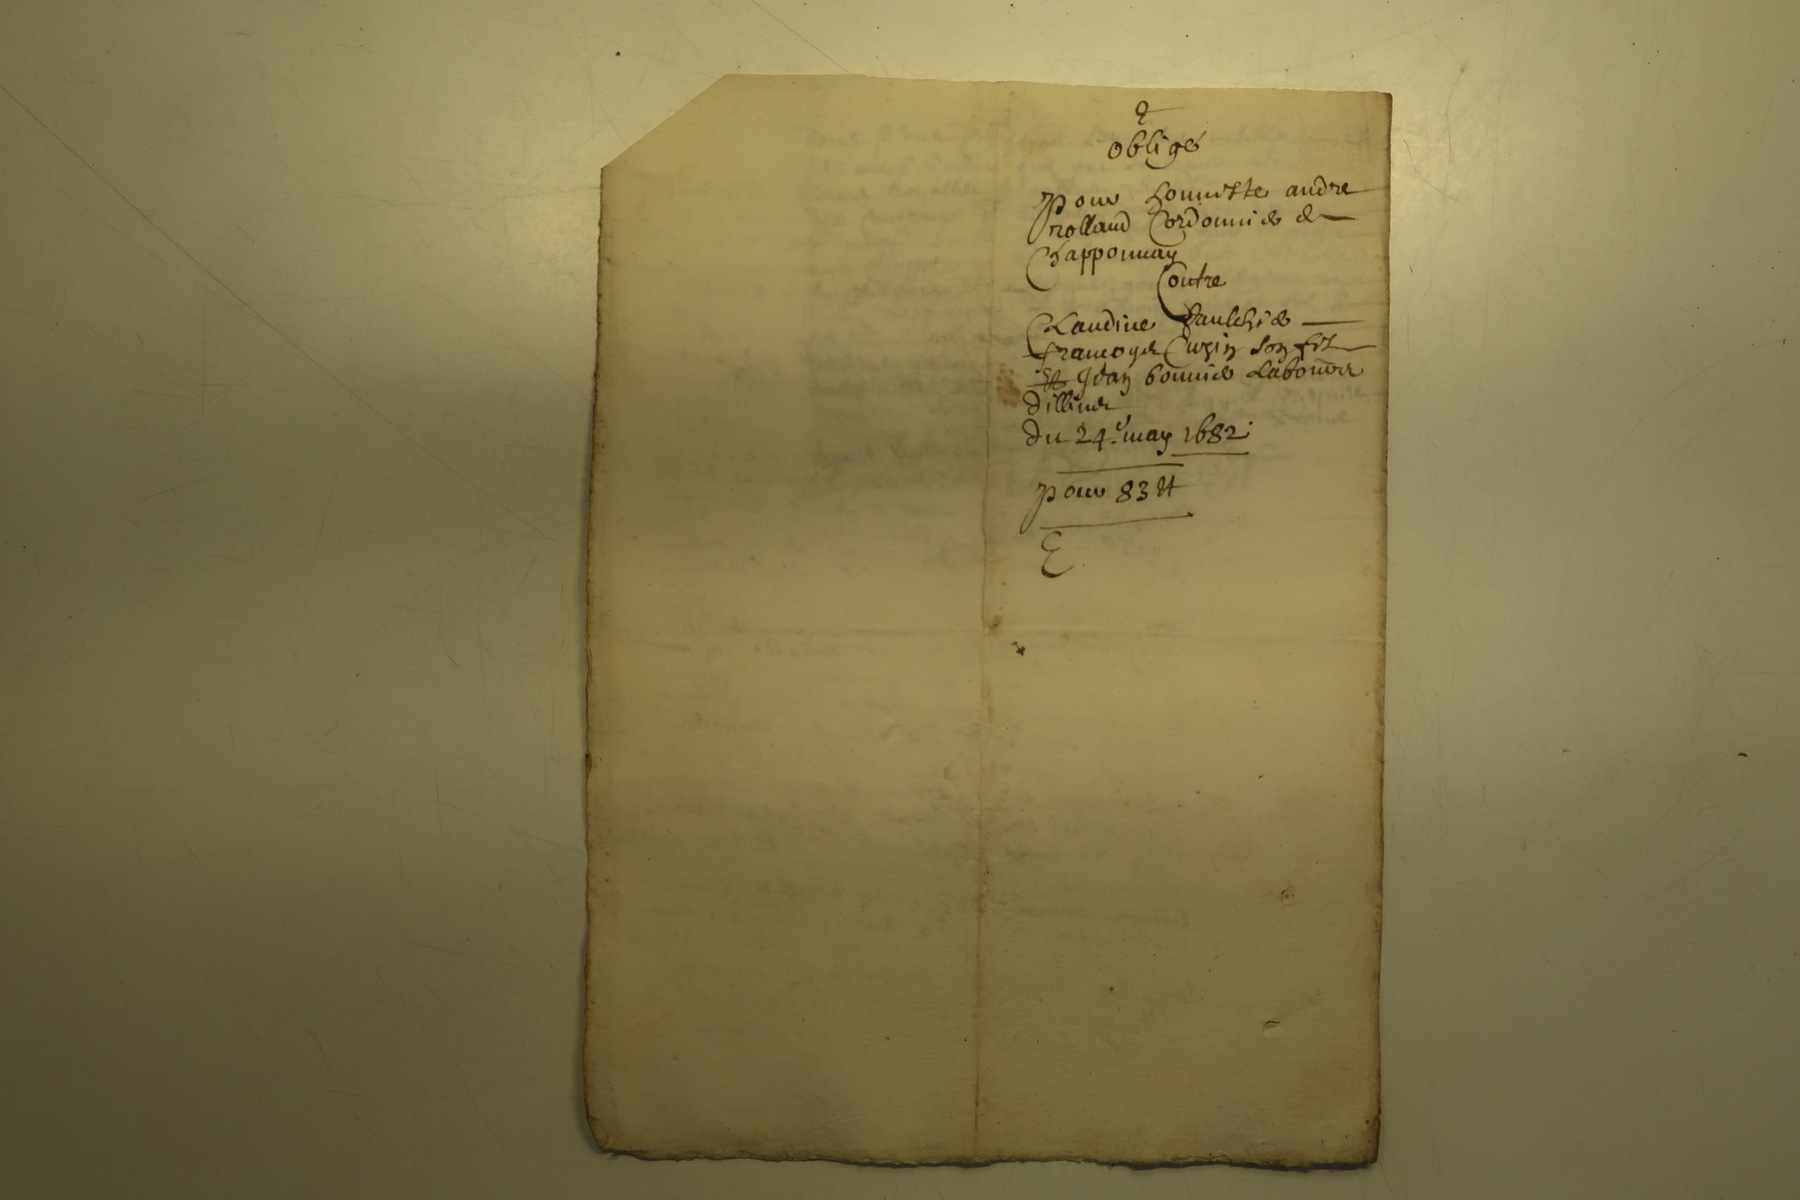 2
obligé
pour honneste andre
rolland Cordonnier de
Chapponnay
Contre
Claudine
francoyse son filz
et Jean bonnier Laboureur
dillins
du 24e may 1682
pour 83 tt
E